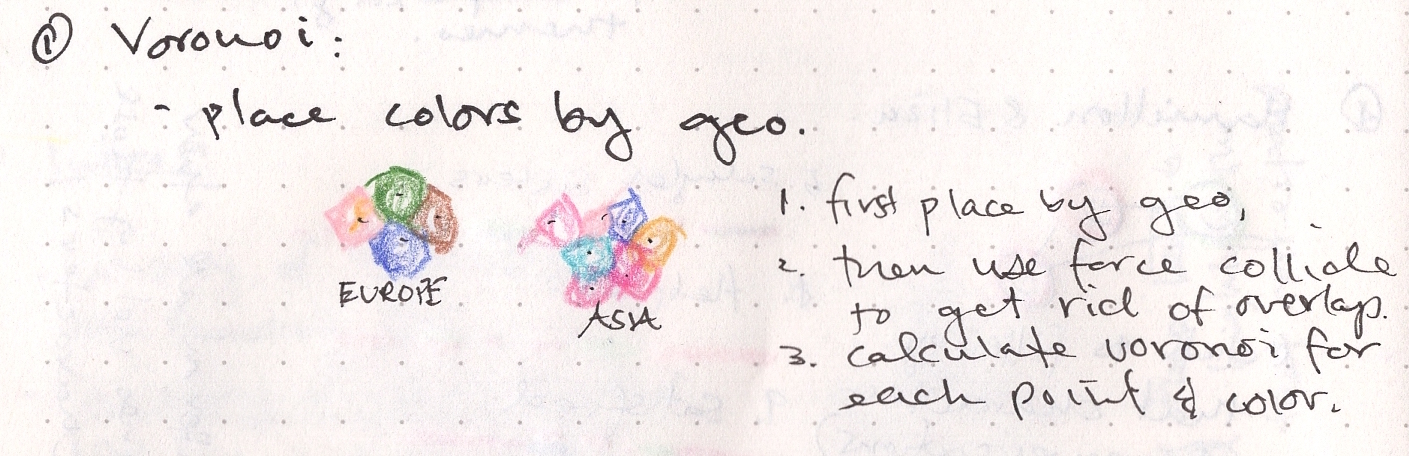 ① Voronoi:
- place colors by geo.
EUROPE
ASIA
1. first place by geo,
2. then use force collide
to get rid of overlap.
3. calculate voronoi for
each point & color.